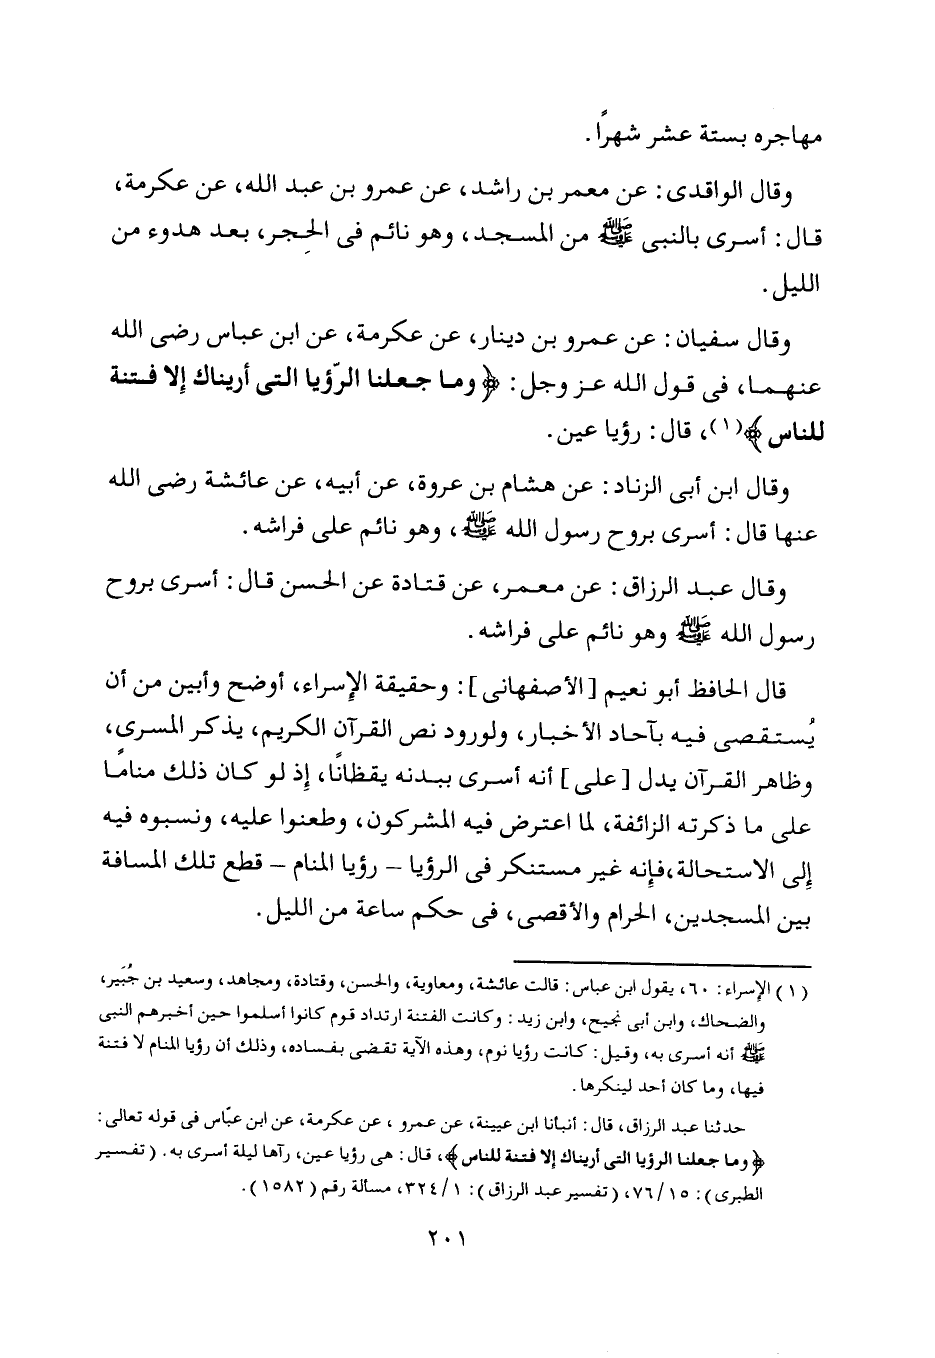 مهاجره بستة عشر شهرًا.
وقال الواقدى: عن معمر بن راشد، عن عمرو بن عبد الله، عن عكرمة،
قال: أسرى بالنبى ﷺ من المسجد، وهو نائم فى الحجر، بعد هدوء من
الليل.
وقال سفيان: عن عمرو بن دينار، عن عكرمة، عن ابن عباس رضى الله
عنهما، فى قول الله عز وجل: ﴿وما جعلنا الرّؤيا التى أريناك إلا فتنة
للناس﴾(١)، قال: رؤيا عين.
وقال ابن أبى الزناد: عن هشام بن عروة، عن أبيه، عن عائشة رضى الله
عنها قال: أسرى بروح رسول الله ﷺ، وهو نائم على فراشه.
وقال عبد الرزاق: عن معمر، عن قتادة عن الحسن قال: أسرى بروح
رسول الله ﷺ وهو نائم على فراشه.
قال الحافظ أبو نعيم [الأصفهانى]: وحقيقة الإسراء، أوضح وأبين من أن
يُستقصى فيه بآحاد الأخبار، ولورود نص القرآن الكريم، يذكر المسرى،
وظاهر القرآن يدل [على] أنه أسرى ببدنه يقظانًا، إذ لو كان ذلك منامًا
على ما ذكرته الزائفة، لما اعترض فيه المشركون، وطعنوا عليه، ونسبوه فيه
إلى الاستحالة،فإنه غير مستنكر فى الرؤيا – رؤيا المنام – قطع تلك المسافة
بين المسجدين، الحرام والأقصى، فى حكم ساعة من الليل.
(١) الإسراء: ٦٠، يقول ابن عباس: قالت عائشة، ومعاوية، والحسن، وقتادة، ومجاهد، وسعيد بن جُبَير،
والضحاك، وابن أبى نجيح، وابن زيد: وكانت الفتنة ارتداد قوم كانوا أسلموا حين أخبرهم النبى
ﷺ أنه أسرى به، وقيل: كانت رؤيا نوم، وهذه الآية تقضى بفساده، وذلك أن رؤيا المنام لا فتنة
فيها، وما كان أحد لينكرها.
حدثنا عبد الرزاق، قال: أنبأنا ابن عيينة، عن عمرو ، عن عكرمة، عن ابن عبّاس فى قوله تعالى:
﴿وما جعلنا الرؤيا التى أريناك إلا فتنة للناس﴾، قال: هى رؤيا عين، رآها ليلة أسرى به. (تفسير
الطبرى): ٧٦/١٥، (تفسير عبد الرزاق): ٣٢٤/١، مسألة رقم (١٥٨٢).
٢٠١